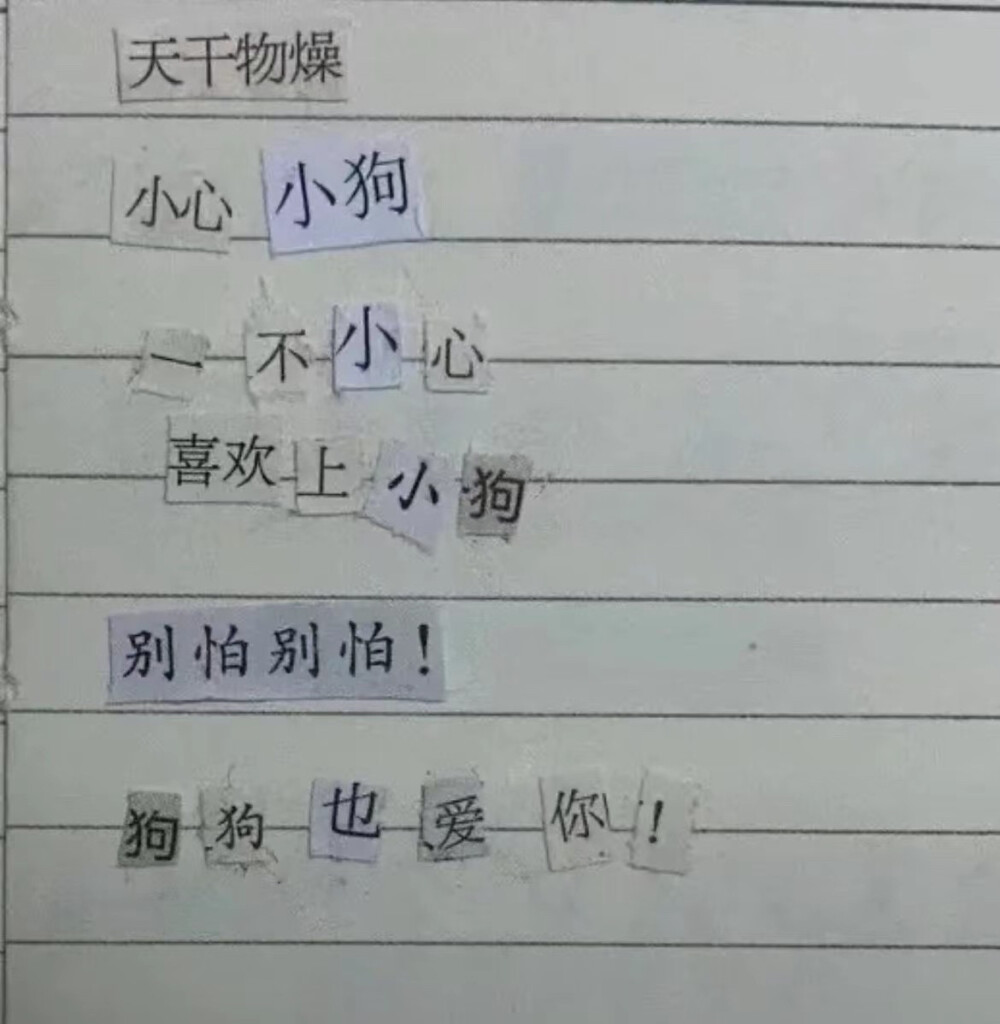 天干物燥
小心 小狗
一 不 小 心
喜欢 上 小 狗
别怕别怕！
狗 狗 也 爱 你 ！